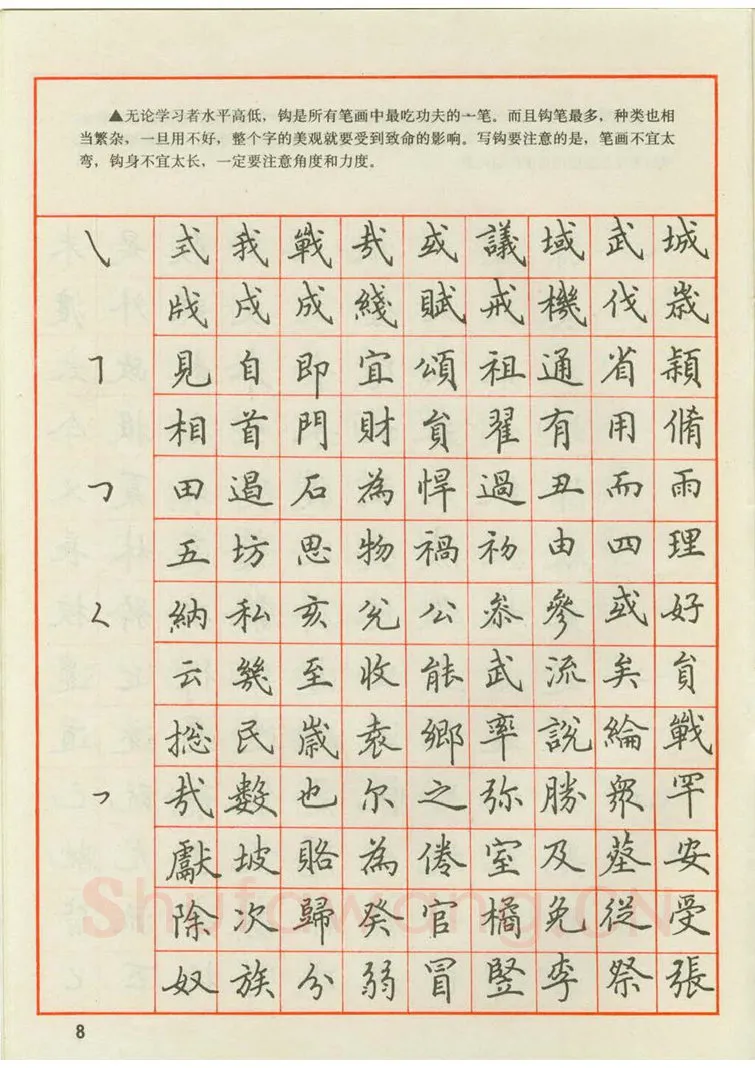 ▲无论学习者水平高低，钩是所有笔画中最吃功夫的一笔。而且钩笔最多，种类也相
当繁杂，一旦用不好，整个字的美观就要受到致命的影响。写钩要注意的是，笔画不宜太
弯，钩身不宜太长，一定要注意角度和力度。
㇏ 式 我 戰 哉 或 議 域 武 城
戕 戍 成 綫 賦 戒 機 伐 歲
㇕ 見 自 即 宜 頌 祖 通 省 穎
相 首 門 財 負 翟 有 用 脩
㇆ 田 遏 石 為 悍 過 丑 而 雨
五 坊 思 物 禍 初 由 四 理
𡿨 納 私 亥 兊 公 叅 參 或 好
云 幾 至 收 能 武 流 矣 負
㇇ 摠 民 歲 袁 鄉 率 說 綸 戰
哉 數 也 尔 之 弥 勝 眾 罕
獻 坡 賂 為 倦 室 及 墓 安
除 次 歸 癸 官 橘 免 從 受
奴 族 分 弱 冒 竪 李 祭 張
Shufawang.CN
8